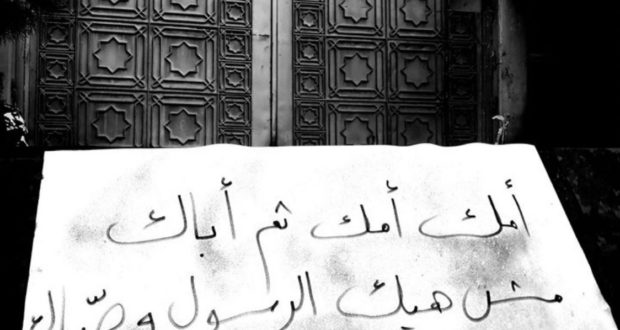 أمك أمك ثم أباك
مش هيك الرسول وصّاك